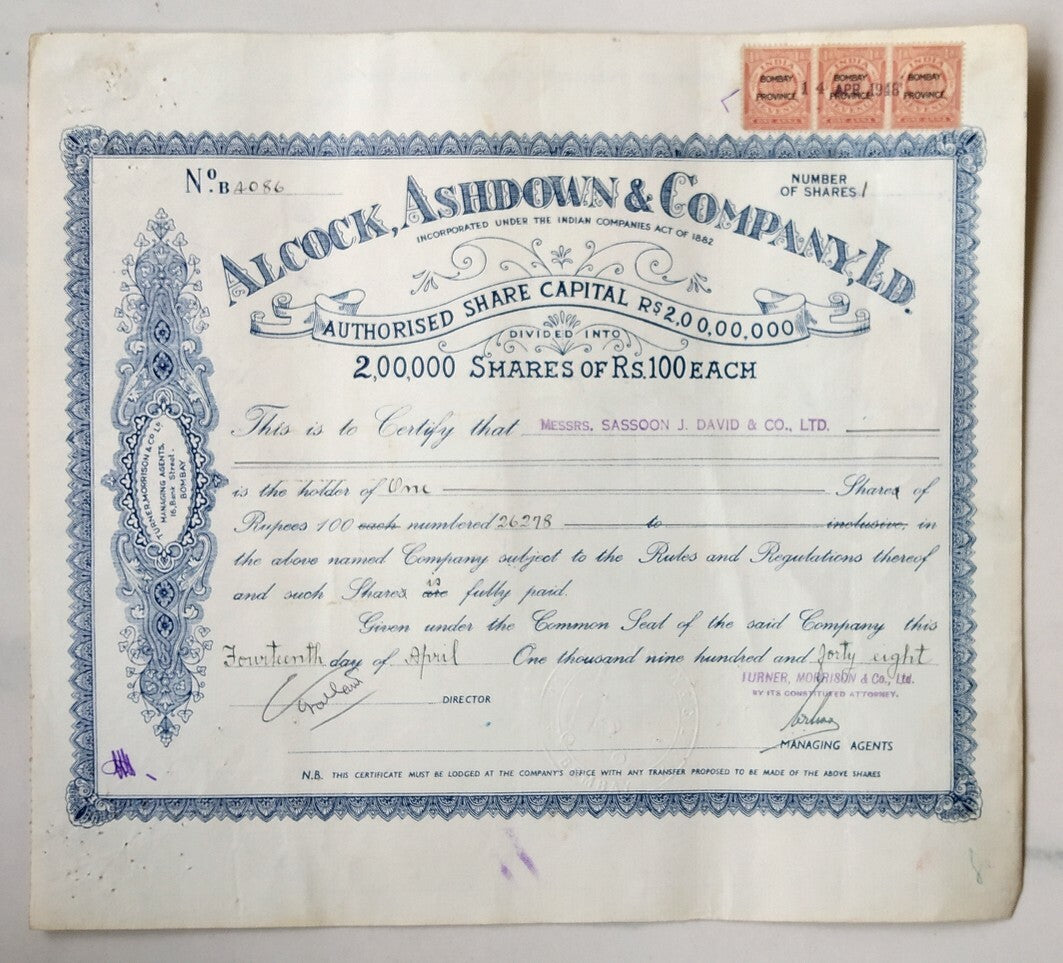 INDIA INDIA INDIA
BOMBAY BOMBAY BOMBAY
14 APR 1948
PROVINCE PROVINCE PROVINCE
ONE ANNA ONE ANNA ONE ANNA
No. B 4086
NUMBER
OF SHARES 1
ALCOCK, ASHDOWN & COMPANY, LD.
INCORPORATED UNDER THE INDIAN COMPANIES ACT OF 1882
AUTHORISED SHARE CAPITAL RS 2,00,00,000
DIVIDED INTO
2,00,000 SHARES OF RS. 100 EACH
This is to Certify that MESSRS. SASSOON J. DAVID & CO., LTD.
is the holder of One Shares of
Rupees 100 each numbered 26278 to inclusive, in
the above named Company subject to the Rules and Regulations thereof
is
and such Shares are fully paid.
Given under the Common Seal of the said Company this
Fourteenth day of April One thousand nine hundred and forty eight
TURNER, MORRISON & Co., Ltd.
BY ITS CONSTITUTED ATTORNEY.
DIRECTOR
MANAGING AGENTS
N.B. THIS CERTIFICATE MUST BE LODGED AT THE COMPANY'S OFFICE WITH ANY TRANSFER PROPOSED TO BE MADE OF THE ABOVE SHARES
TURNER, MORRISON & CO. LD.
MANAGING AGENTS.
16, Bank Street.
BOMBAY